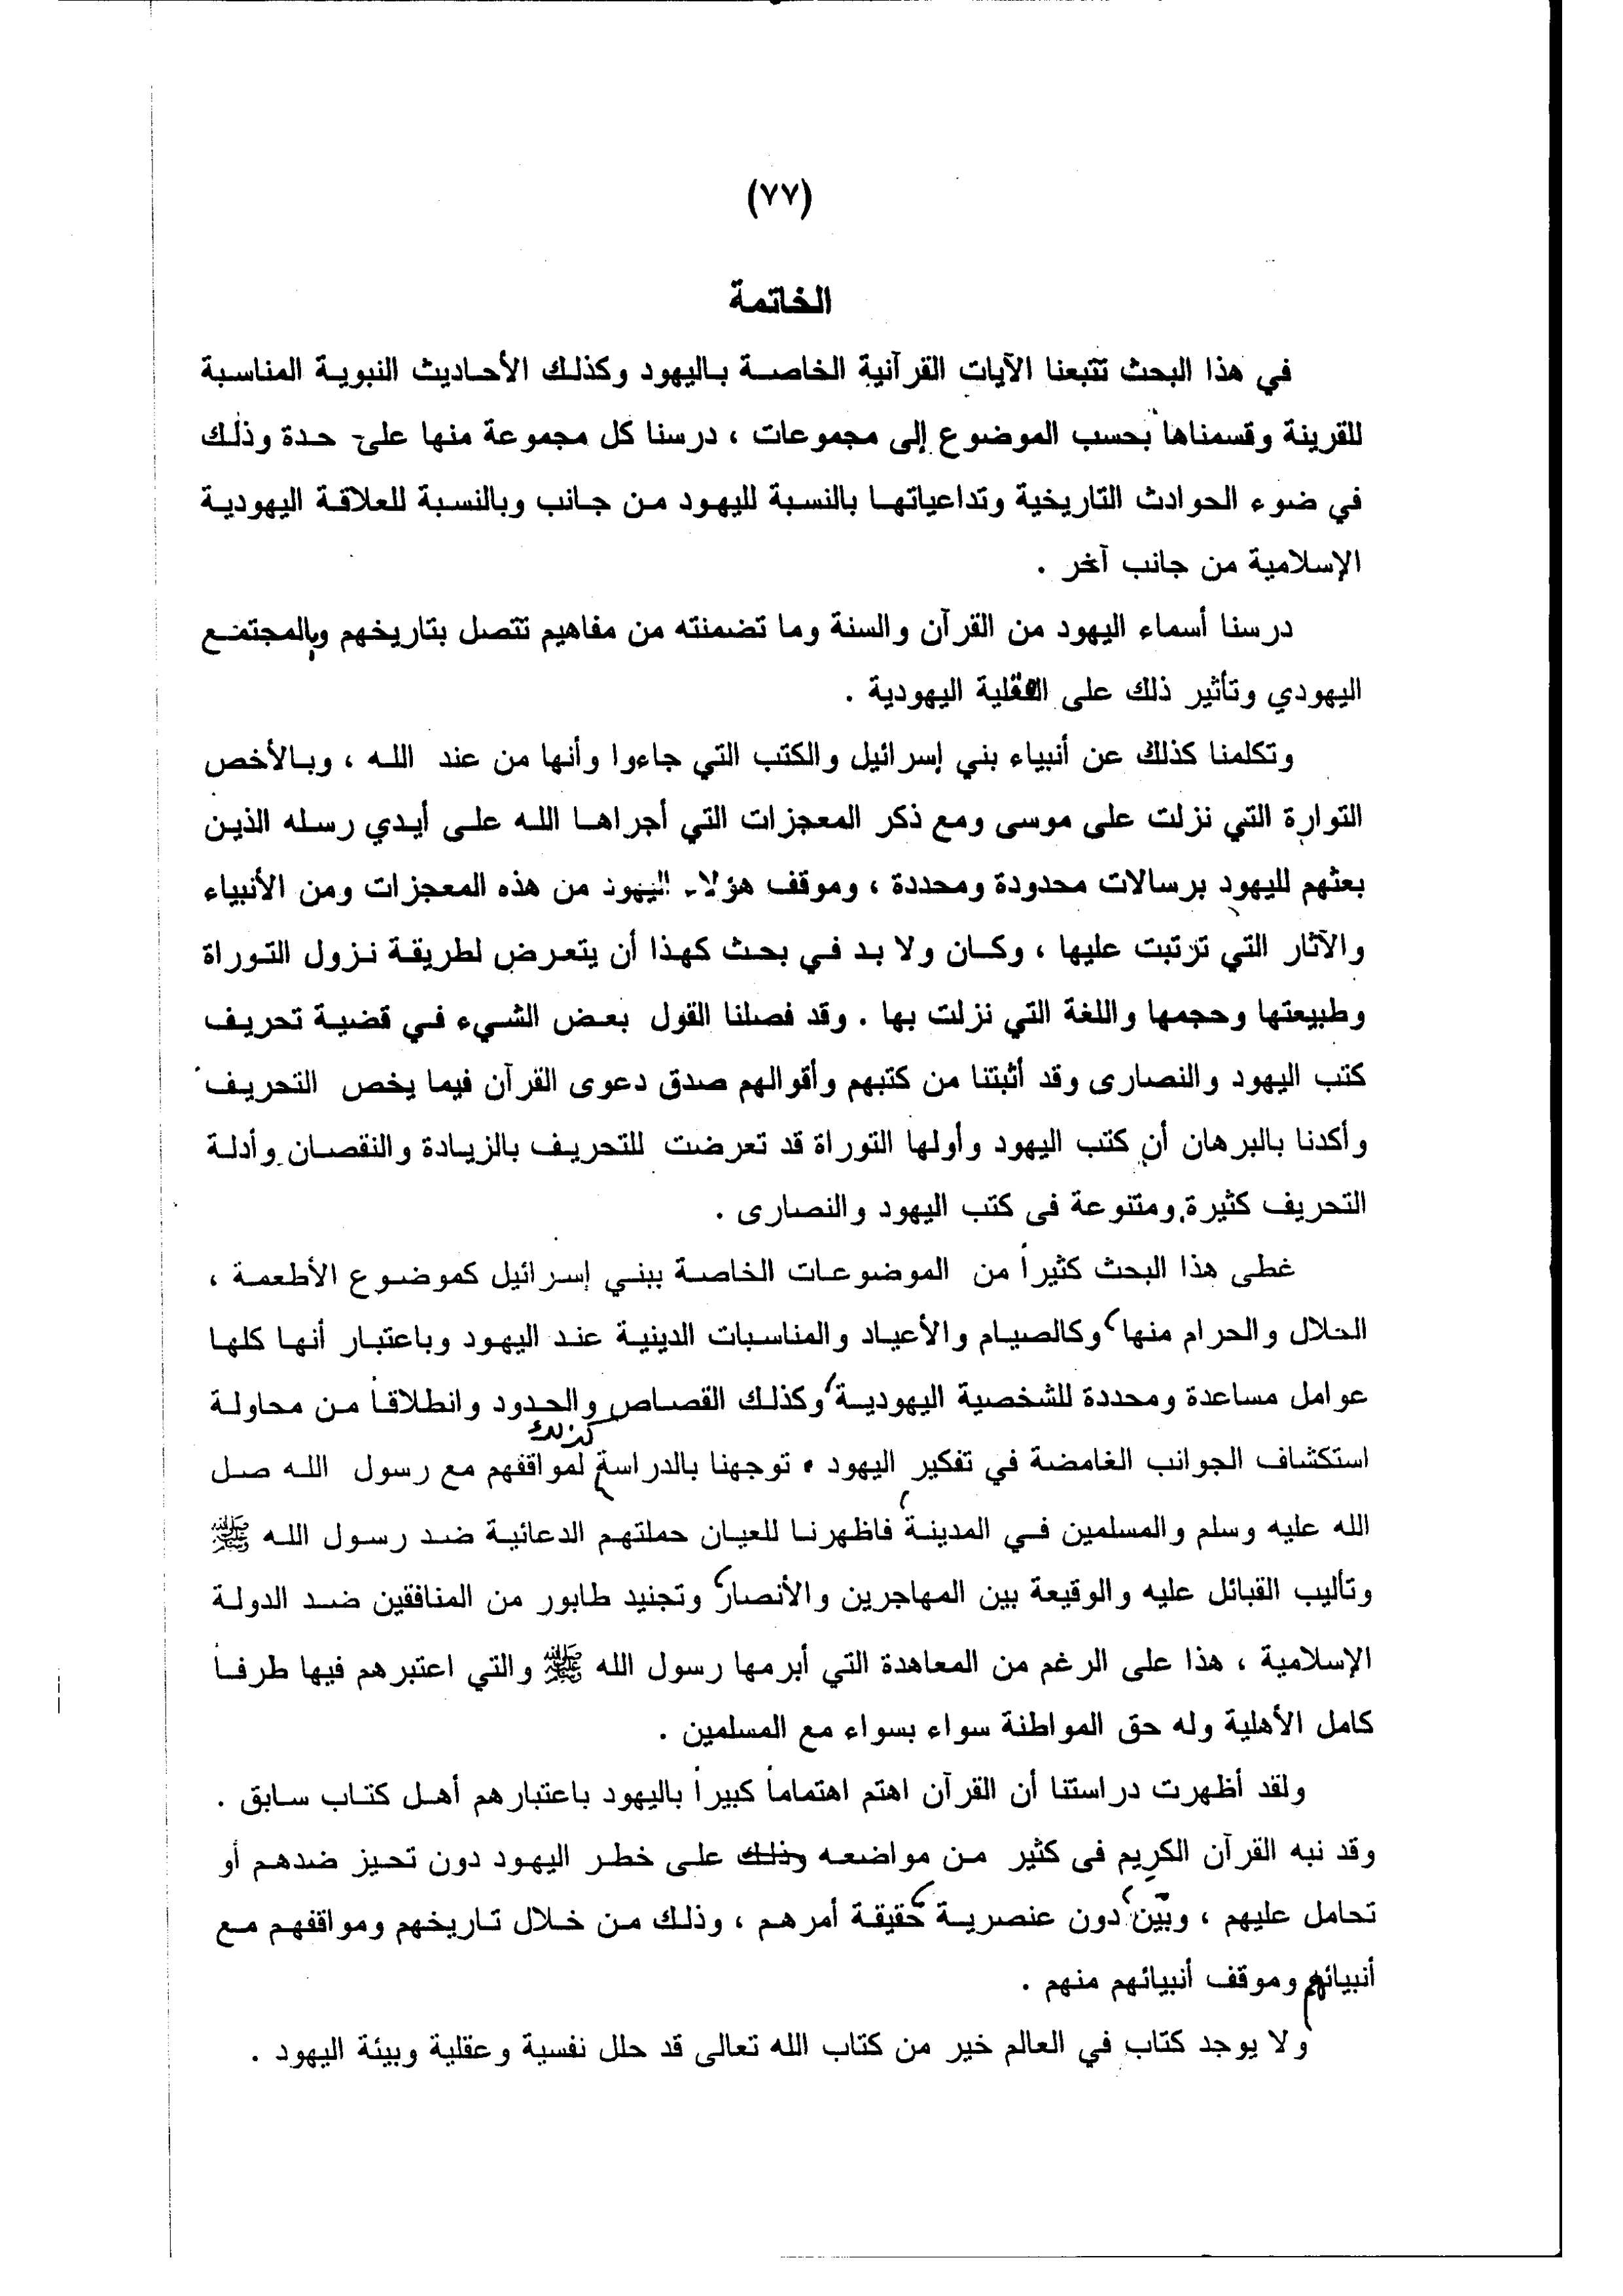 (٧٧)
الخاتمة
في هذا البحث تتبعنا الآيات القرآنية الخاصة باليهود وكذلك الأحاديث النبوية المناسبة
للقرينة وقسمناها بحسب الموضوع إلى مجموعات ، درسنا كل مجموعة منها على حدة وذلك
في ضوء الحوادث التاريخية وتداعياتها بالنسبة لليهود من جانب وبالنسبة للعلاقة اليهودية
الإسلامية من جانب آخر .
درسنا أسماء اليهود من القرآن والسنة وما تضمنته من مفاهيم تتصل بتاريخهم وبالمجتمع
اليهودي وتأثير ذلك على العقلية اليهودية .
وتكلمنا كذلك عن أنبياء بني إسرائيل والكتب التي جاءوا وأنها من عند الله ، وبالأخص
التوارة التي نزلت على موسى ومع ذكر المعجزات التي أجراها الله على أيدي رسله الذين
بعثهم لليهود برسالات محدودة ومحددة ، وموقف هؤلاء اليهود من هذه المعجزات ومن الأنبياء
والآثار التي ترتبت عليها ، وكان ولا بد في بحث كهذا أن يتعرض لطريقة نزول التوراة
وطبيعتها وحجمها واللغة التي نزلت بها . وقد فصلنا القول بعض الشيء في قضية تحريف
كتب اليهود والنصارى وقد أثبتنا من كتبهم وأقوالهم صدق دعوى القرآن فيما يخص التحريف
وأكدنا بالبرهان أن كتب اليهود وأولها التوراة قد تعرضت للتحريف بالزيادة والنقصان وأدلة
التحريف كثيرة ومتنوعة فى كتب اليهود والنصارى .
غطى هذا البحث كثيراً من الموضوعات الخاصة ببني إسرائيل كموضوع الأطعمة ،
الحلال والحرام منها، وكالصيام والأعياد والمناسبات الدينية عند اليهود وباعتبار أنها كلها
عوامل مساعدة ومحددة للشخصية اليهودية، وكذلك القصاص والحدود وانطلاقاً من محاولة
استكشاف الجوانب الغامضة في تفكير اليهود . توجهنا بالدراسة كذلك لمواقفهم مع رسول الله صل
الله عليه وسلم والمسلمين في المدينة فاظهرنا للعيان حملتهم الدعائية ضد رسول الله ﷺ
وتأليب القبائل عليه والوقيعة بين المهاجرين والأنصار، وتجنيد طابور من المنافقين ضد الدولة
الإسلامية ، هذا على الرغم من المعاهدة التي أبرمها رسول الله ﷺ والتي اعتبرهم فيها طرفاً
كامل الأهلية وله حق المواطنة سواء بسواء مع المسلمين .
ولقد أظهرت دراستنا أن القرآن اهتم اهتماماً كبيراً باليهود باعتبارهم أهل كتاب سابق .
وقد نبه القرآن الكريم فى كثير من مواضعه وذلك على خطر اليهود دون تحيز ضدهم أو
تحامل عليهم ، وبَيَّن، دون عنصرية، حقيقة أمرهم ، وذلك من خلال تاريخهم ومواقفهم مع
أنبيائهم وموقف أنبيائهم منهم .
ولا يوجد كتاب في العالم خير من كتاب الله تعالى قد حلل نفسية وعقلية وبيئة اليهود .